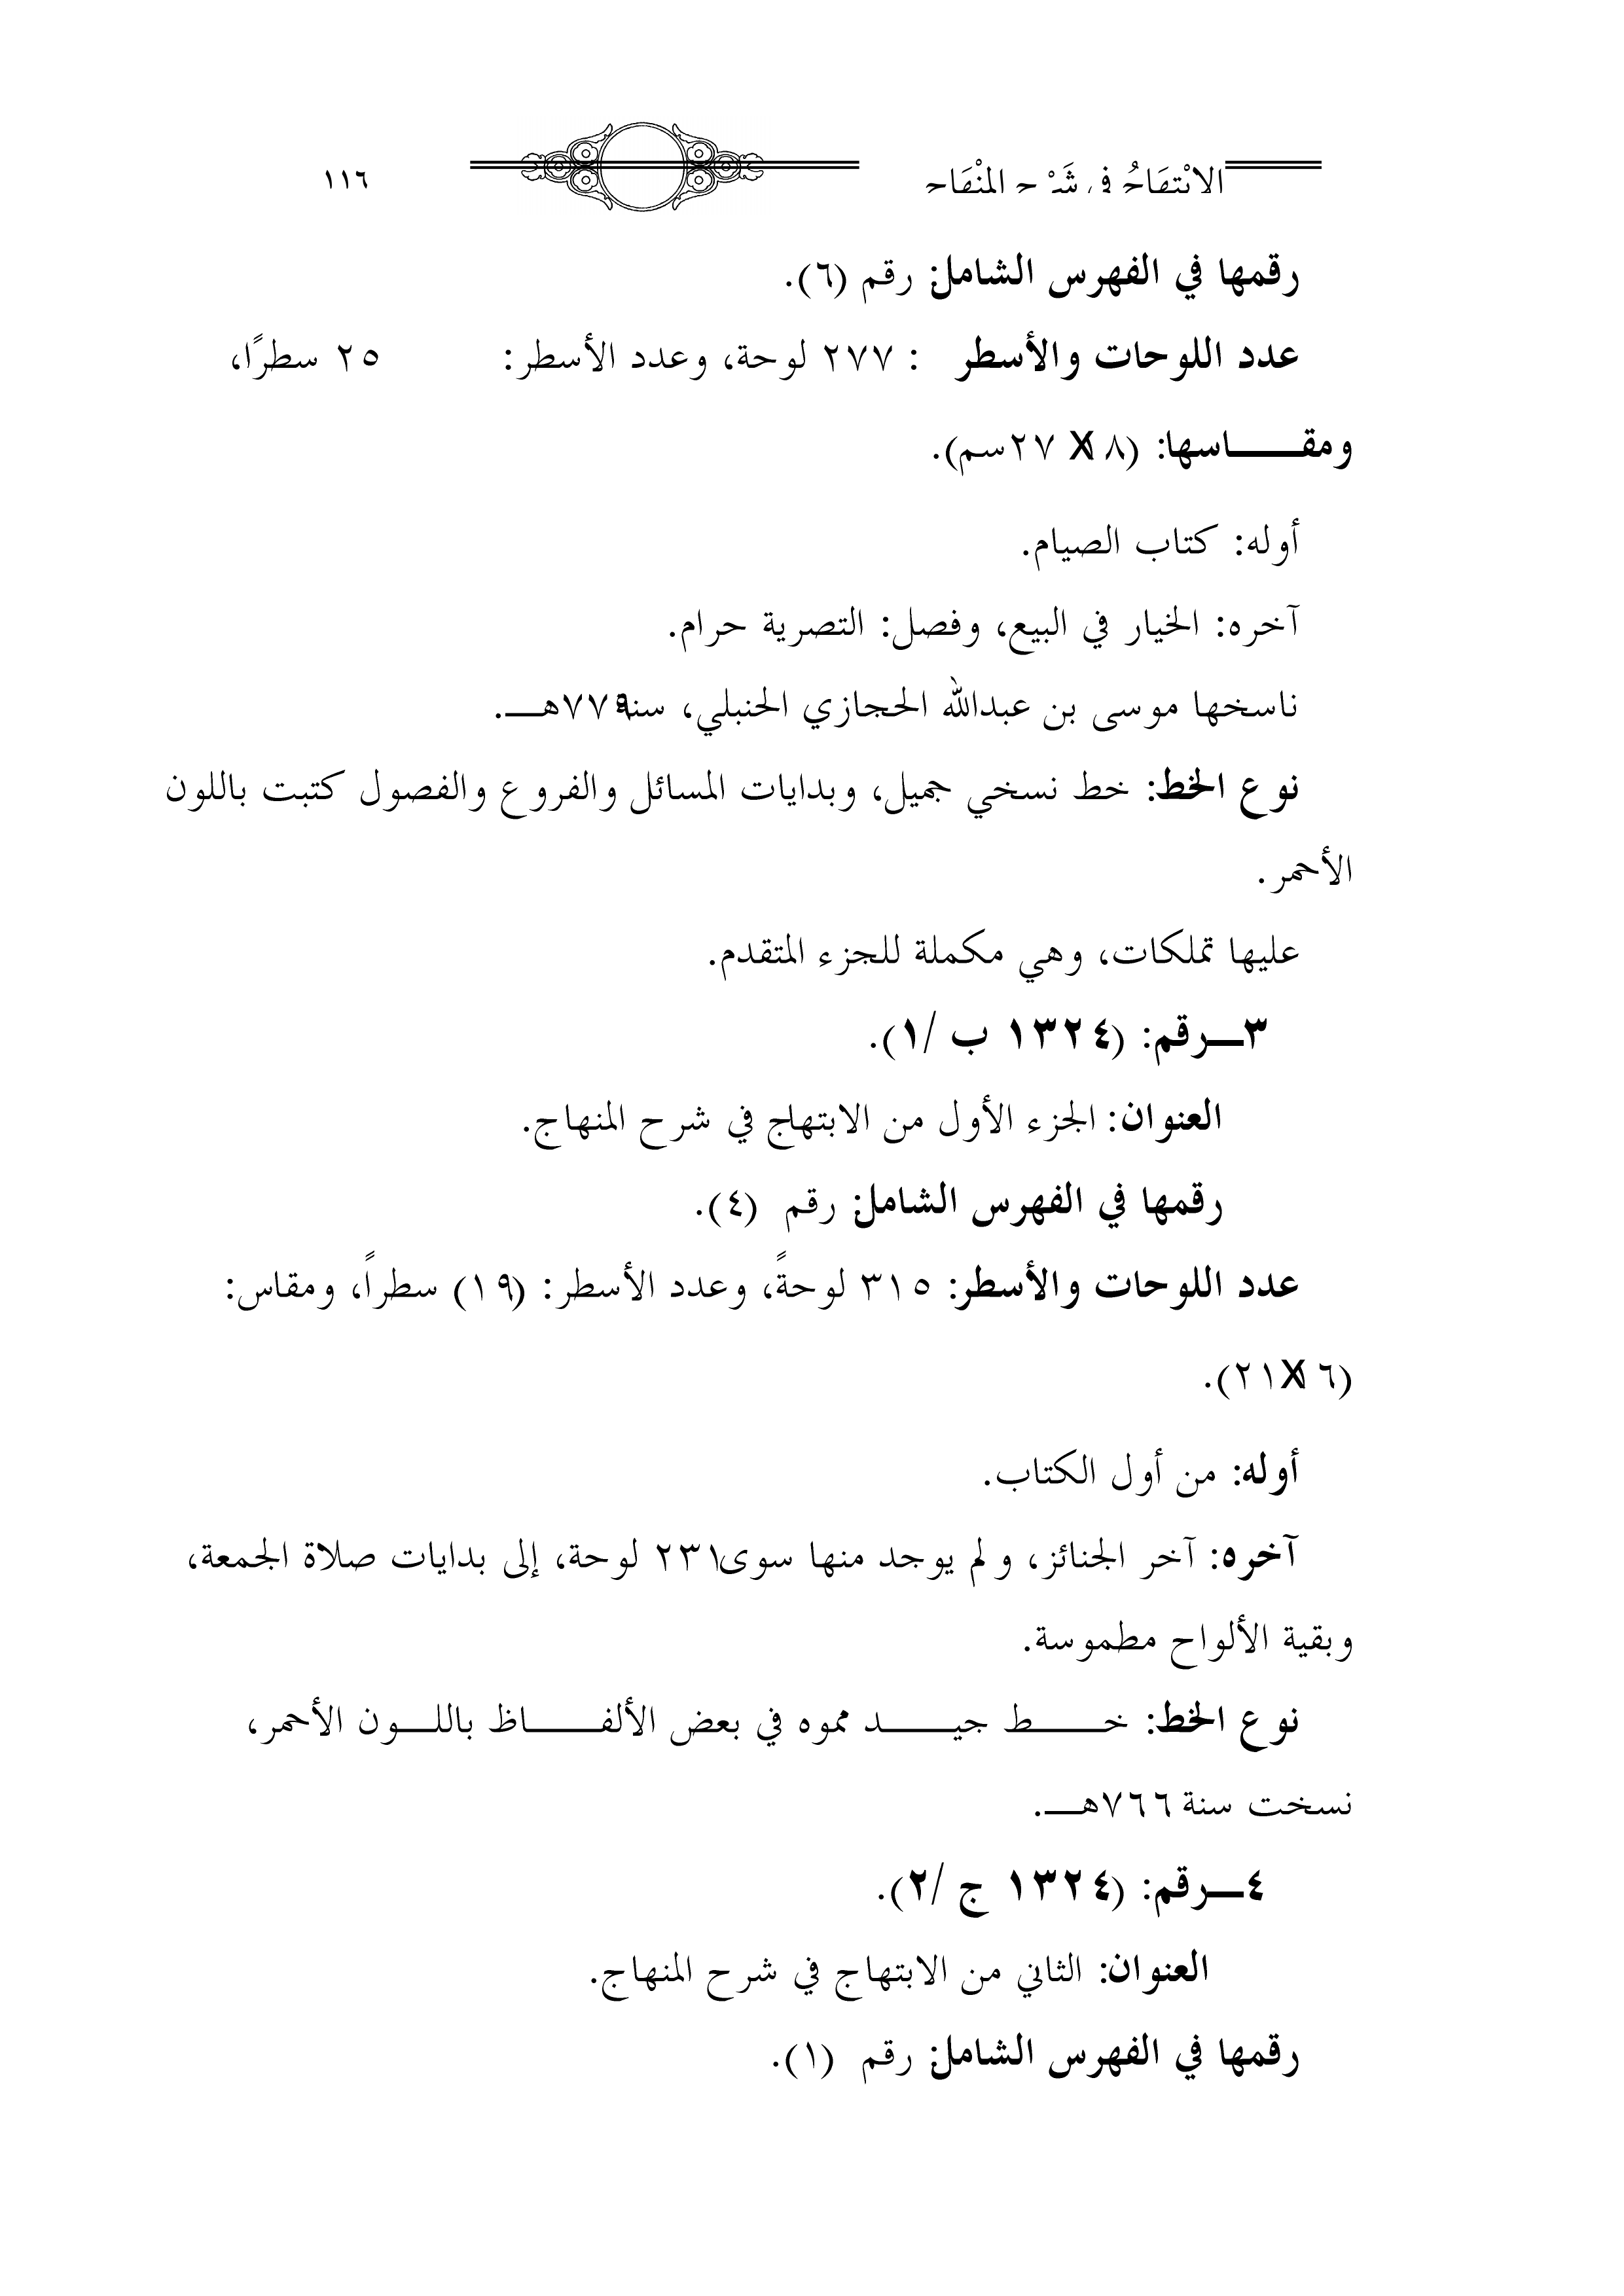 الابْتِهَاجُ فِي شَرْحِ المِنْهَاجِ ١١٦
رقمها في الفهرس الشامل: رقم (٦).
عدد اللوحات والأسطر : ٢٧٧ لوحة، وعدد الأسطر: ٢٥ سطرًا،
ومقـــــاسها: (١٨ X ٢٧سم).
أوله: كتاب الصيام.
آخره: الخيار في البيع، وفصل: التصرية حرام.
ناسخها موسى بن عبدالله الحجازي الحنبلي، سنة٧٧٩هـــ.
نوع الخط: خط نسخي جميل، وبدايات المسائل والفروع والفصول كتبت باللون
الأحمر.
عليها تملكات، وهي مكملة للجزء المتقدم.
٣ـــرقم: (١٣٢٤ ب /١).
العنوان: الجزء الأول من الابتهاج في شرح المنهاج.
رقمها في الفهرس الشامل: رقم (٤).
عدد اللوحات والأسطر: ٣١٥ لوحةً، وعدد الأسطر: (١٩) سطراً، ومقاس:
(١٦X٢١).
أوله: من أول الكتاب.
آخره: آخر الجنائز، ولم يوجد منها سوى٢٣١ لوحة، إلى بدايات صلاة الجمعة،
وبقية الألواح مطموسة.
نوع الخط: خـــــط جيـــــد مموه في بعض الألفـــــاظ باللـــون الأحمر،
نسخت سنة ٧٦٦هـــ.
٤ـــرقم: (١٣٢٤ ج /٢).
العنوان: الثاني من الابتهاج في شرح المنهاج.
رقمها في الفهرس الشامل: رقم (١).